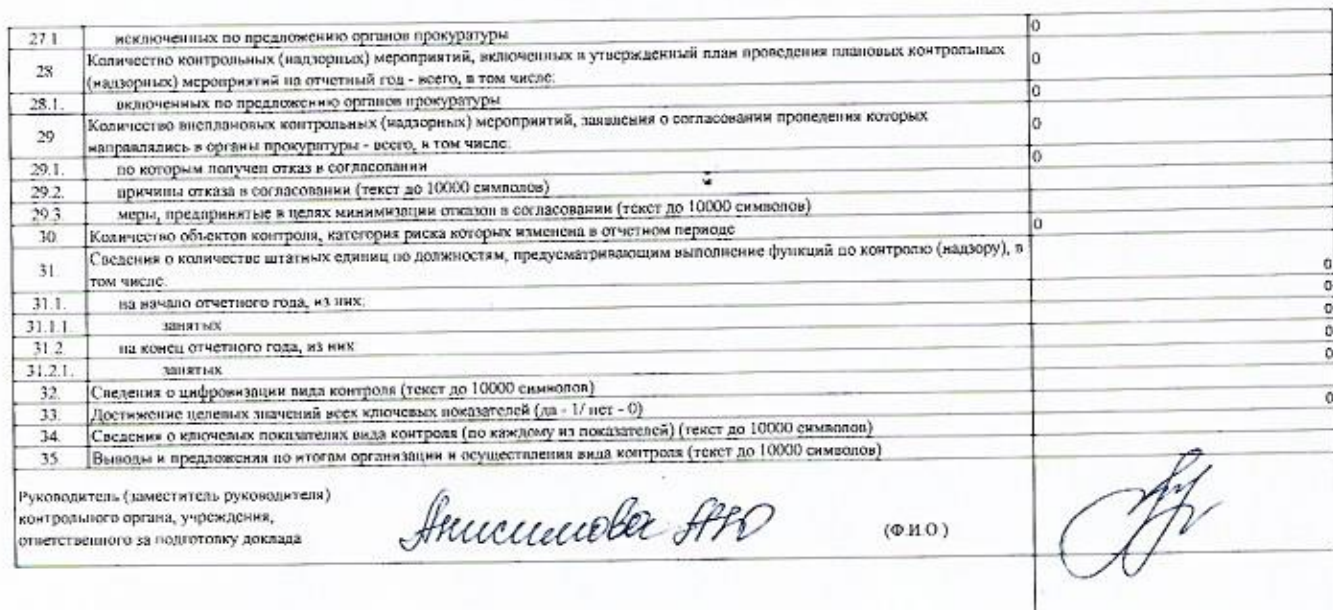 27.1 исключенных по предложению органов прокуратуры 0
28 Количество контрольных (надзорных) мероприятий, включенных в утвержденный план проведения плановых контрольных 0
(надзорных) мероприятий на отчетный год - всего, в том числе:
28.1. включенных по предложению органов прокуратуры 0
29 Количество внеплановых контрольных (надзорных) мероприятий, заявления о согласовании проведения которых 0
направлялись в органы прокуратуры - всего, в том числе:
29.1. по которым получен отказ в согласовании 0
29.2. причины отказа в согласовании (текст до 10000 символов)
29.3. меры, предпринятые в целях минимизации отказов в согласовании (текст до 10000 символов)
30. Количество объектов контроля, категория риска которых изменена в отчетном периоде 0
31. Сведения о количестве штатных единиц по должностям, предусматривающим выполнение функций по контролю (надзору), в 0
том числе:
31.1. на начало отчетного года, из них: 0
31.1.1. занятых 0
31.2. на конец отчетного года, из них 0
31.2.1. занятых 0
32. Сведения о цифровизации вида контроля (текст до 10000 символов)
33. Достижение целевых значений всех ключевых показателей (да - 1/ нет - 0) 0
34. Сведения о ключевых показателях вида контроля (по каждому из показателей) (текст до 10000 символов)
35. Выводы и предложения по итогам организации и осуществления вида контроля (текст до 10000 символов)
Руководитель (заместитель руководителя)
контрольного органа, учреждения,
ответственного за подготовку доклада Анисимова АЮ (Ф.И.О)